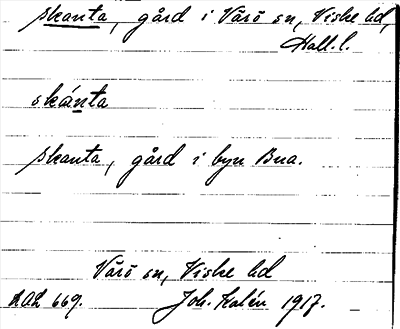 Skanta, gård i Värö sn, Viske hd,
Hall. l.
skánta
Skanta, gård i byn Bua.
Värö sn, Viske hd
AAL 669. Joh. Kalén 1917.